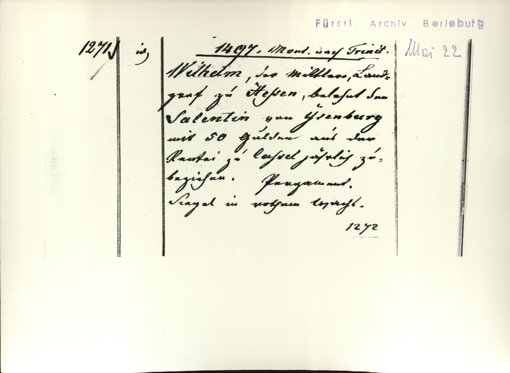 Fürstl. Archiv Berleburg
1271. 1497. Mont. nach Trinit. Mai 22
Wilhelm, der Mittlere, Land-
graf zu Hessen, belehnt den
Salentin von Ysenburg
mit 50 Gulden aus der
Rentei zu Cassel jährlich zu-
beziehen. Pergament.
Siegel in rothem Wachs.
1272